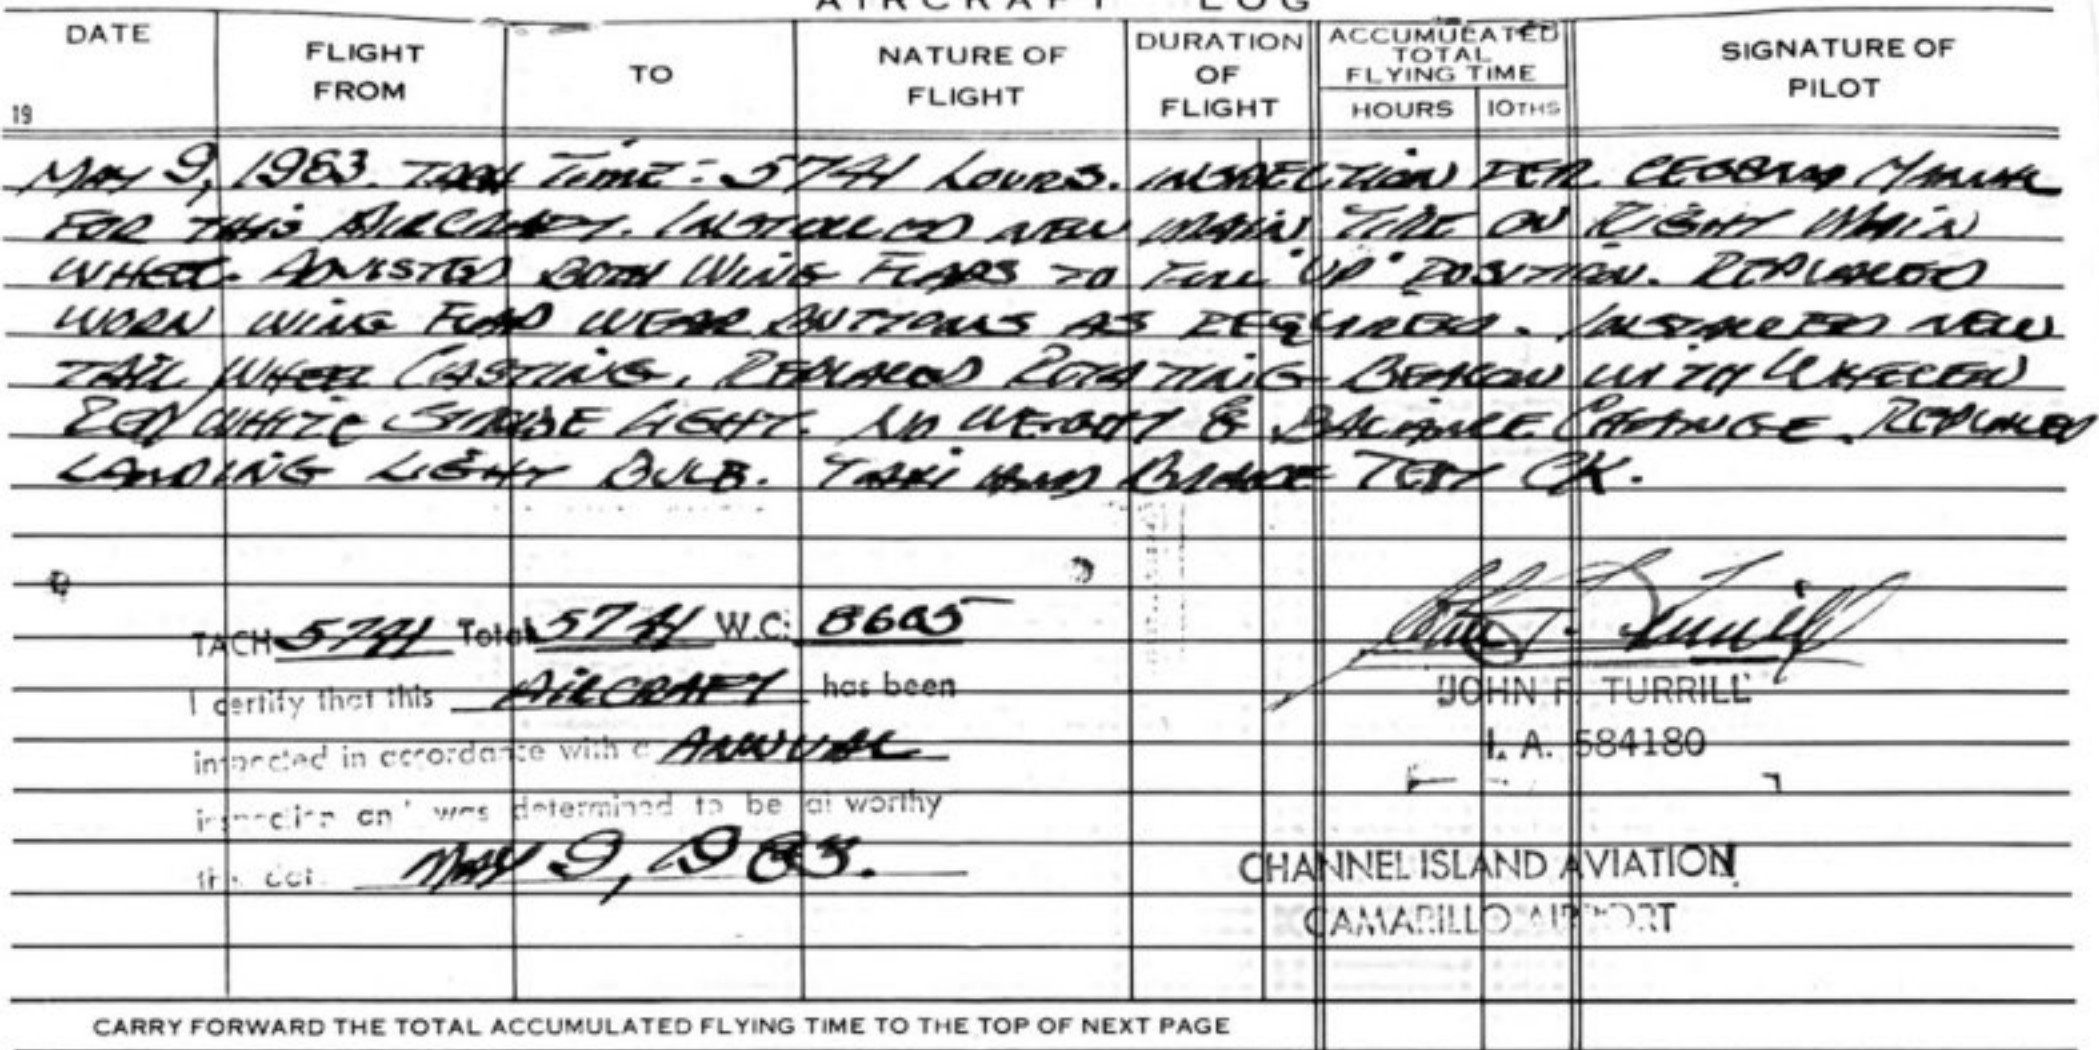 AIRCRAFT LOG
DATE
19
FLIGHT
FROM
TO
NATURE OF
FLIGHT
DURATION
OF
FLIGHT
ACCUMULATED
TOTAL
FLYING TIME
HOURS 10THS
SIGNATURE OF
PILOT
MAY 9, 1983. TACH TIME: 5741 HOURS. INSPECTION PER CESSNA MANUAL
FOR THIS AIRCRAFT. INSTALLED NEW MAIN TIRE ON RIGHT MAIN
WHEEL. ADJUSTED BOTH WING FLAPS TO FULL "UP" POSITION. REPLACED
WORN WING FLAP WEAR BUTTONS AS REQUIRED. INSTALLED NEW
TAIL WHEEL CASTING. REPLACED ROTATING BEACON WITH WHELEN
RED/WHITE STROBE LIGHT. NO WEIGHT & BALANCE CHANGE. REPLACED
LANDING LIGHT BULB. TAXI AND BRAKE TEST OK.
TACH 5741 Total 5741 W.C: 8605
I certify that this AIRCRAFT has been
inspected in accordance with a ANNUAL
inspection and was determined to be airworthy
this date MAY 9, 1983.
JOHN F. TURRILL
I. A. 584180
CHANNEL ISLAND AVIATION
CAMARILLO AIRPORT
CARRY FORWARD THE TOTAL ACCUMULATED FLYING TIME TO THE TOP OF NEXT PAGE